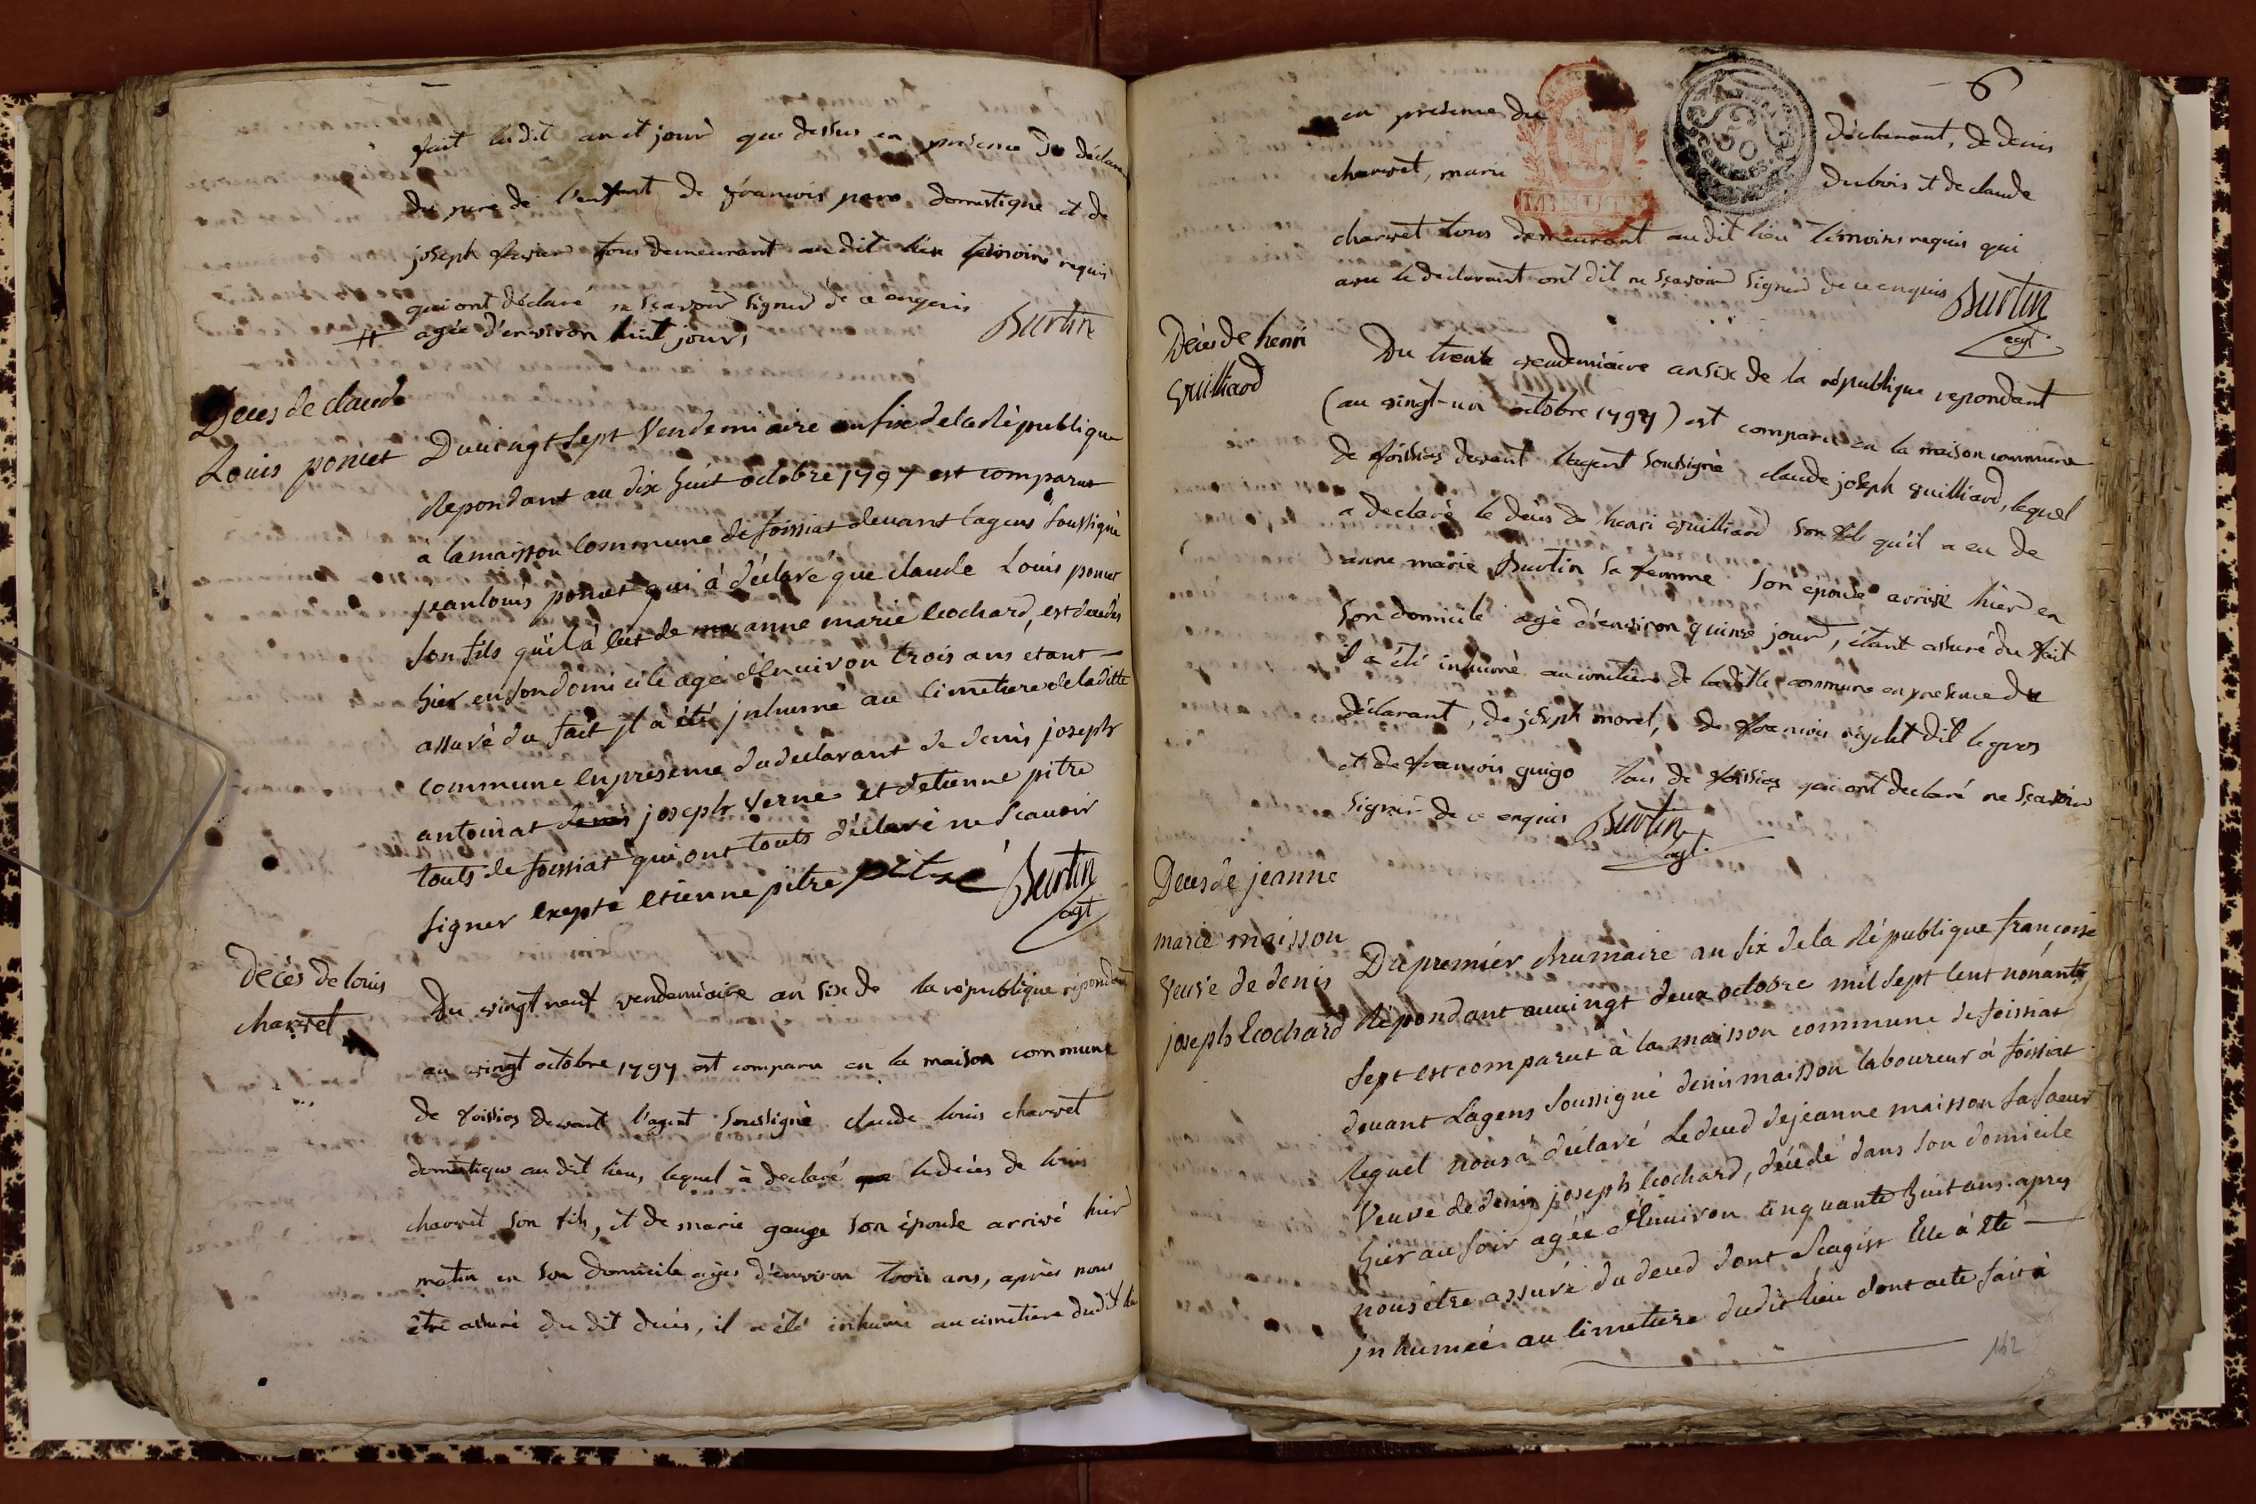 fait ledit an et jour que dessus en presence du déclarant
du pere de l'enfant de francois pero domestique et de
joseph tous demeurant au dit lieu temoins requis
qui ont déclaré ne sçavoir signer de ce enquis
# agée d'environ huit jours
Burtin
Deces de claude
Louis poncet
Du vingt sept Vendemiaire an six de la Republique
Repondant au dix huit octobre 1797 est comparut
a la maison Commune de foissiat devant lagent Soussigné
jean louis poncet qui à déclaré que claude Louis poncet
son fils qu'il à eut de anne marie cochard, est decedés
hier en son domicile agé d'environ trois ans etant
assuré du fait jl à été jnhumé au cimetiere de la ditte
commune en presence du declarant de denis joseph
antoinat denis joseph Verne et d'etienne pitre
touts de foissiat qui ont touts déclaré ne Scavoir
signer exepté etienne pitre pitre
Burtin
agt
décès de louis
charvet
Du vingt neuf vendemiaire an six de la république répondant
au vingt octobre 1797 est comparu en la maison commune
de foissias devant l'agent soussigné claude louis charvet
domestique au dit lieu, lequel à declaré que le décès de louis
charvet son fils, et de marie gauge son épouse arrivé hier
matin en son domicile agés d'environ trois ans, après nous
être assuré du dit décès, il a été inhumé au cimetiere dudit lieu
6
en presence du déclarant, de denis
charvet, marie Dubois et de claude
MINUTE
50
charvet tous demeurant au dit lieu témoins requis qui
avec le declarant ont dit ne sçavoir signer de ce enquis
Burtin
agt
Décès de henri
Vuilliard
Du trente vendemiaire an six de la république repondant
(au vingt-un octobre 1797) est comparu en la maison commune
de foissias devant l'agent soussigné, claude joseph vuilliard, lequel
a declaré le décès de henri vuilliard son fils qu'il a eu de
anne marie Burtin sa femme son épouse arrivé hier en
son domicile agé d'environ quinze jours, étant assuré du fait
il a été inhumé au cimetiere de la ditte commune en presence du
déclarant, de joseph morel, de francois dit le gros
et de francois guigo tous de foissias qui ont declaré ne sçavoir
signer de ce enquis
Burtin
agt.
Deces de jeanne
marie maisson
Veuve de denis
joseph Cochard
Du premiér brumaire an six de la République francoise
Répondant au vingt deux octobre mil sept cent nonante
Sept est comparut à la maisson commune de foissiat
devant Lagens Soussigné denis maisson laboureur à foissiat
lequel nous à déclaré Le deced de jeanne maisson sa Soeur
Veuve de denis joseph Cochard, décédé dans son domicile
hier au soir agée d'Environ cinquante huit ans. apres
nous être assuré du deced dont Seagist Elle à Eté
jnhumée au Cimetiere dudit lieu dont acte fait à
162